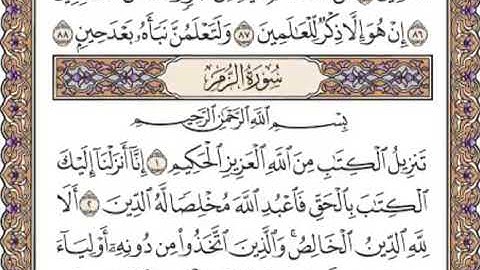 ٨٦ إِنْ هُوَ إِلَّا ذِكْرٌ لِّلْعَٰلَمِينَ ٨٧ وَلَتَعْلَمُنَّ نَبَأَهُۥ بَعْدَ حِينٍۭ ٨٨
سُورَةُ الزُّمَرِ
بِسْمِ ٱللَّهِ ٱلرَّحْمَٰنِ ٱلرَّحِيمِ
تَنزِيلُ ٱلْكِتَٰبِ مِنَ ٱللَّهِ ٱلْعَزِيزِ ٱلْحَكِيمِ ١ إِنَّآ أَنزَلْنَآ إِلَيْكَ
ٱلْكِتَٰبَ بِٱلْحَقِّ فَٱعْبُدِ ٱللَّهَ مُخْلِصًا لَّهُ ٱلدِّينَ ٢ أَلَا
لِلَّهِ ٱلدِّينُ ٱلْخَالِصُ ۚ وَٱلَّذِينَ ٱتَّخَذُوا۟ مِن دُونِهِۦٓ أَوْلِيَآءَ